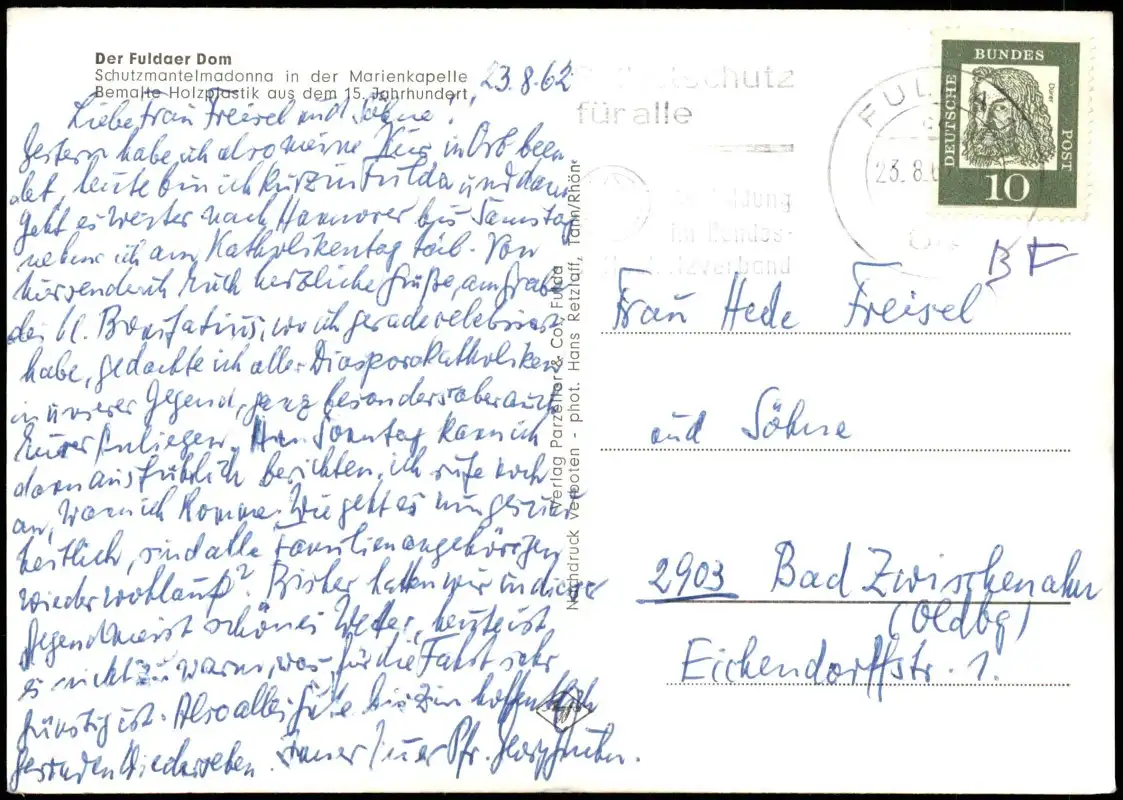 Der Fuldaer Dom
Schutzmantelmadonna in der Marienkapelle
Bemalte Holzplastik aus dem 15. Jahrhundert
23.8.62
Liebe Frau Freisel und Söhne!
Gestern habe ich also meine Kur in Orb been-
det, heute bin ich kurz in Fulda und dann
geht es weiter nach Hannover bis Samstag
nehme ich am Katholikentag teil. Von
hier sende ich Euch herzliche Grüße, am Grabe
des hl. Bonifatius, wo ich gerade celebriert
habe, gedachte ich aller Diasporakatholiken
in unserer Gegend, ganz besonders aber auch
Eurer Anliegen. Am Sonntag kann ich
dann ausführlich berichten, ich rufe noch
an, wann ich komme. Wie geht es nun gesund-
heitlich, sind alle Familienangehörigen
wieder wohlauf? Bisher hatten wir in dieser
Gegend meist schönes Wetter, heute ist
es nicht zu warm, was für die Fahrt sehr
günstig ist. Also alles Gute bis zum hoffentlich
gesunden Wiedersehen. Immer Euer Pfr.
Verlag Parzeller & Co., Fulda
Nachdruck verboten - phot. Hans Retzlaff, Tann/Rhön
für alle
FULDA
23.8.6
DEUTSCHE
BUNDES
POST
Dürer
10
Frau Hede Freisel
und Söhne
2903 Bad Zwischenahn
(Oldbg)
Eichendorffstr. 1.